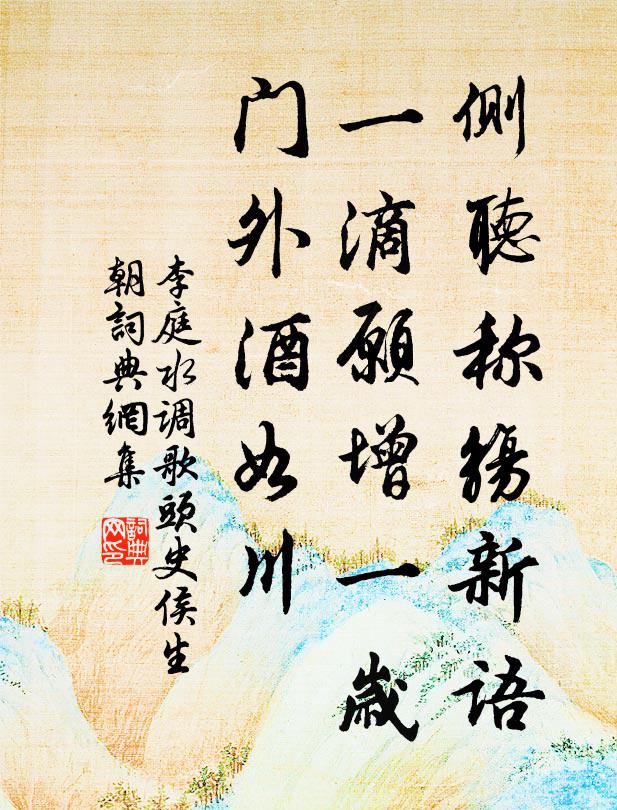 侧聴称觴新语
一滴願增一歳
门外酒如川
李庭水调歌頭史侯生
朝詞典網集
詞典
网印